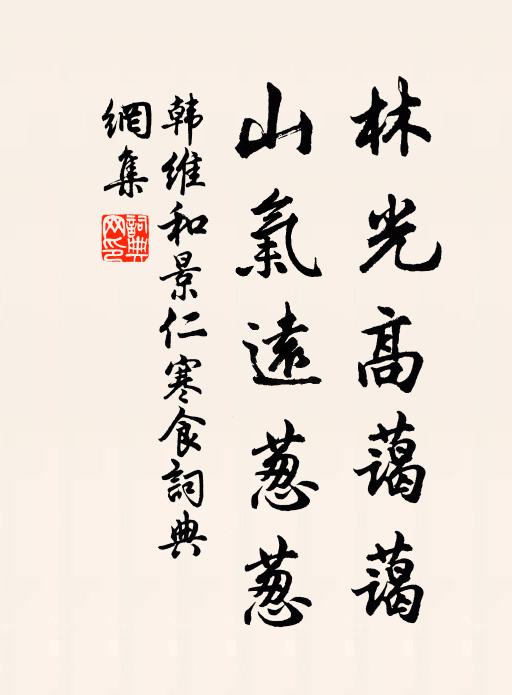 林光高藹藹
山氣遠葱葱
韩維和景仁寒食詞典
網集
詞典網印